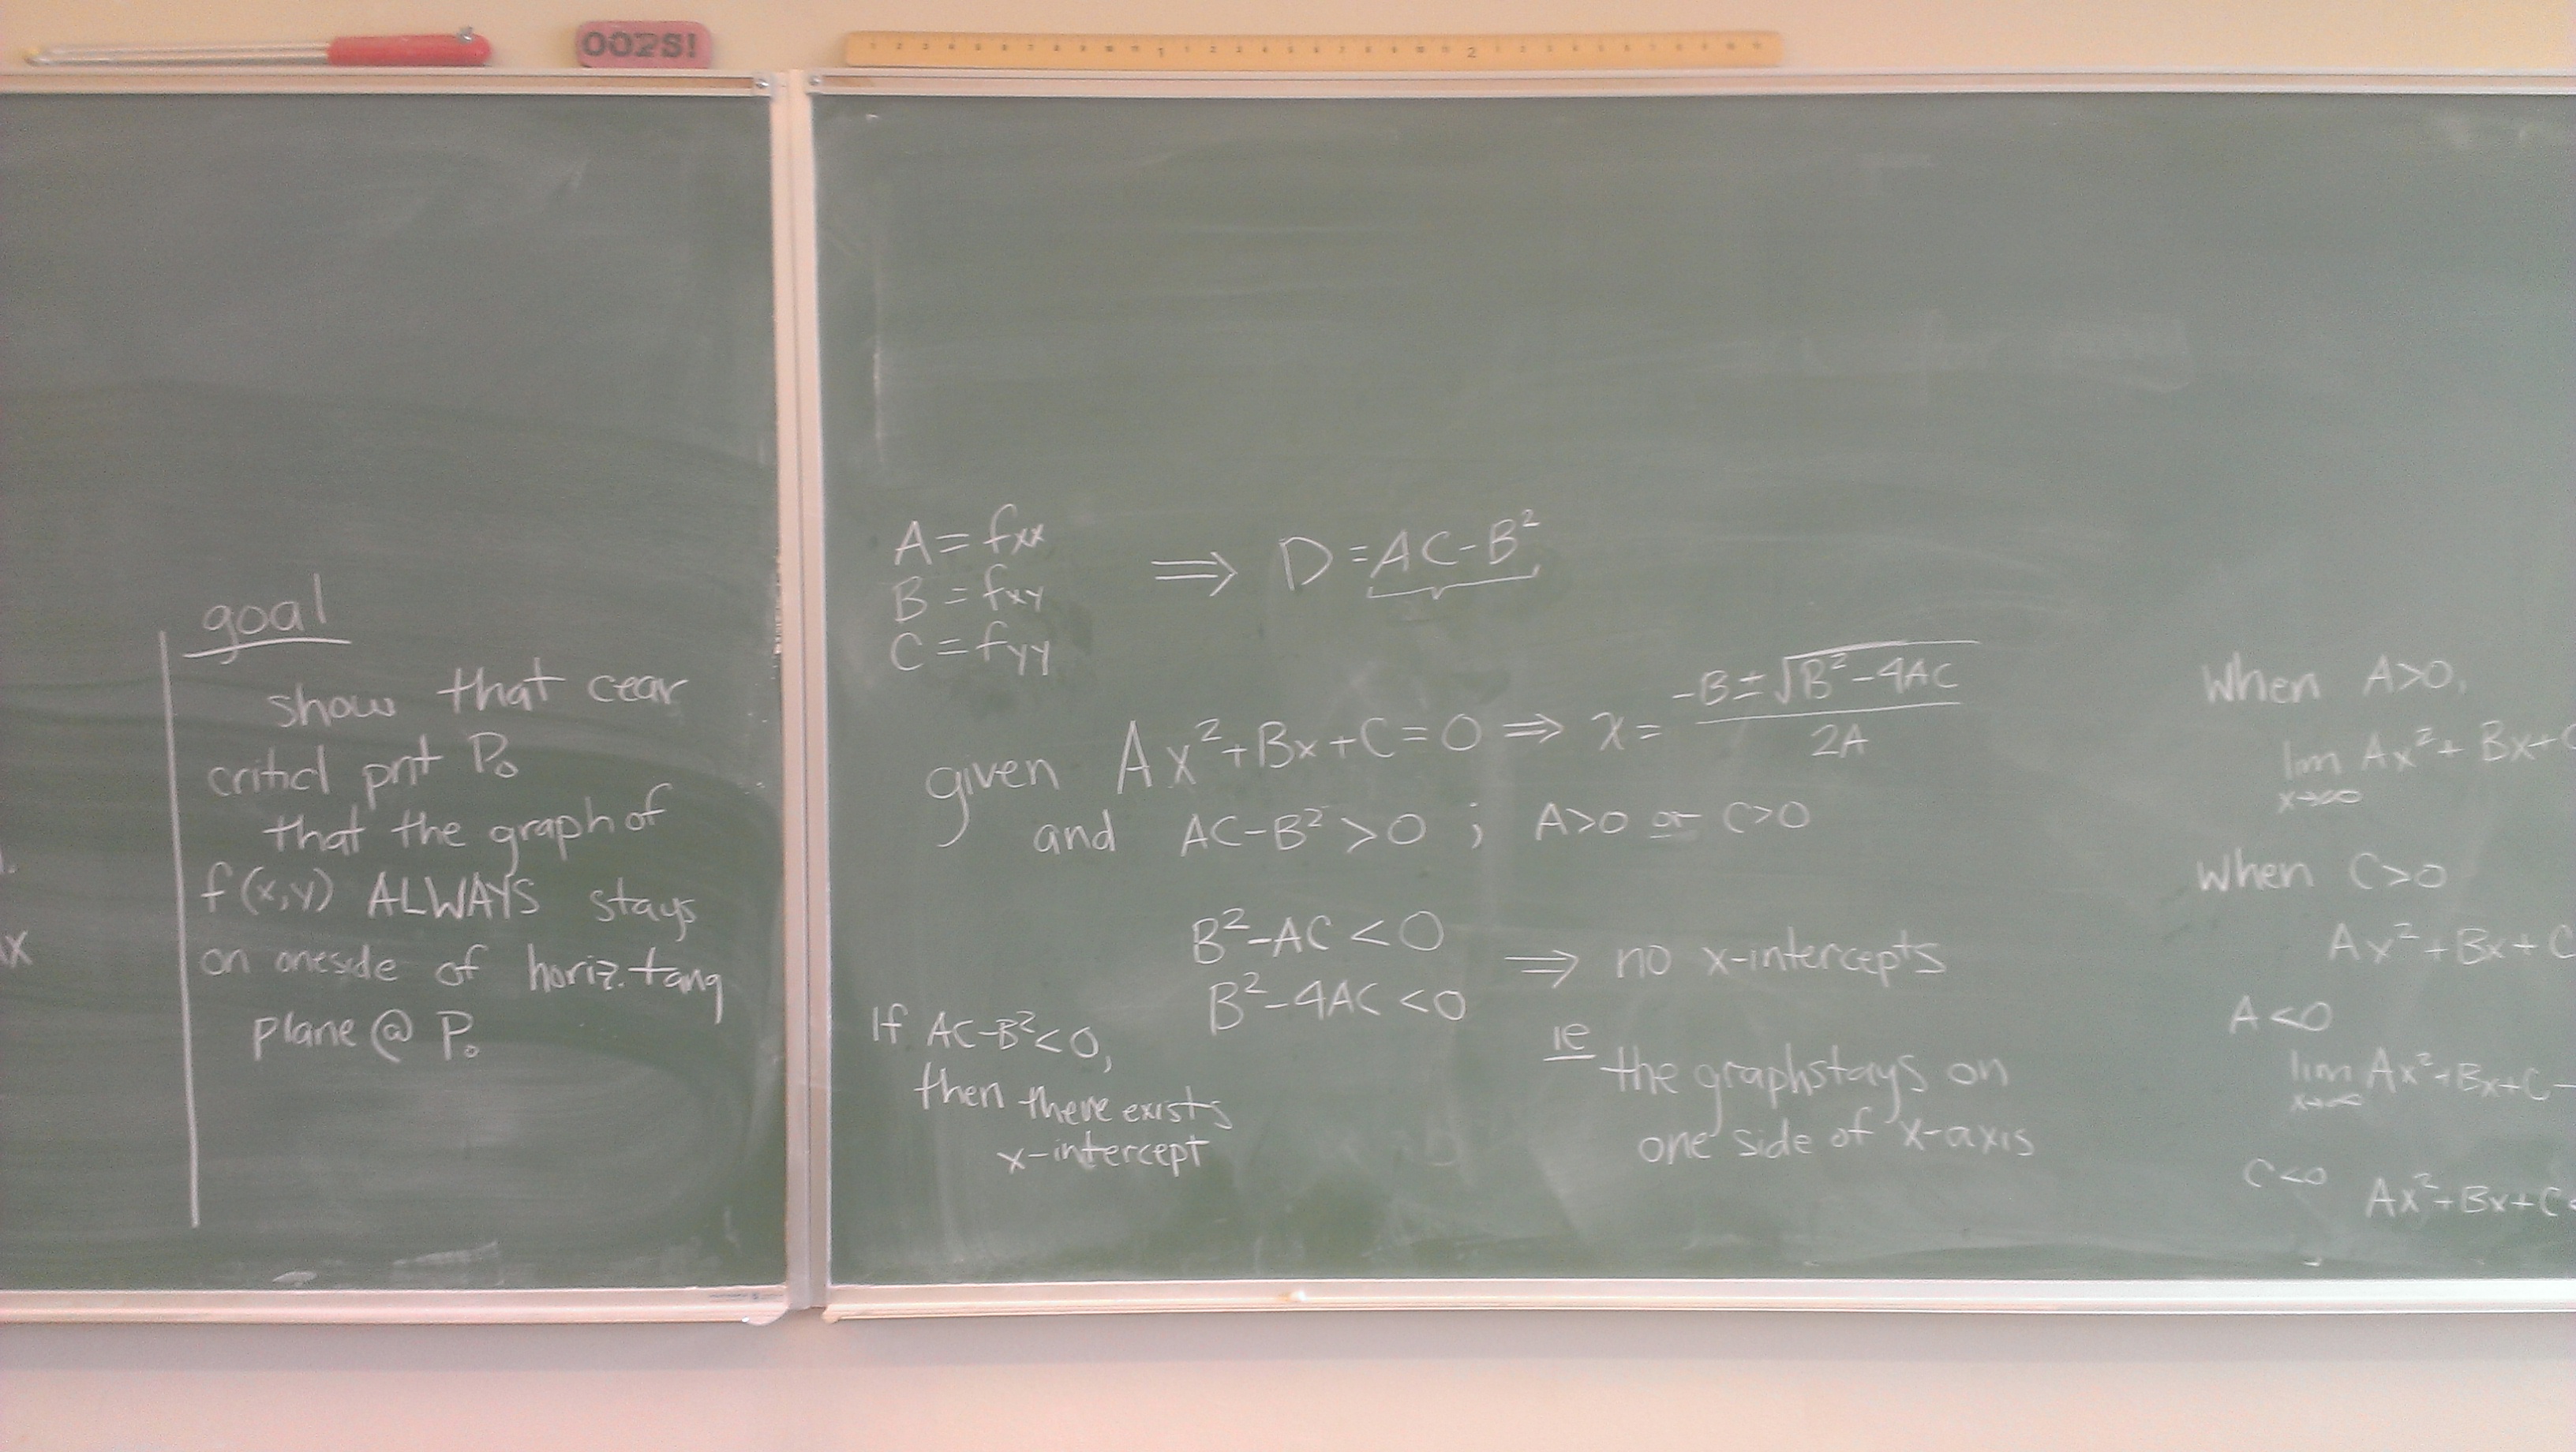 OOPS!
goal
show that cear
criticl pnt P₀
that the graph of
f(x,y) ALWAYS stays
on oneside of horiz. tang
plane @ P₀
x
A = fxx
B = fxy
C = fyy
⟹ D = AC-B²
given Ax²+Bx+C=0 ⟹ x = (-B±√(B²-4AC))/2A
and AC-B²>0 ; A>0 or C>0
B²-AC<0
B²-4AC<0
⟹ no x-intercepts
ie the graph stays on
one side of x-axis
If AC-B²<0,
then there exists
x-intercept
When A>0,
lim Ax²+Bx+C
x→∞
When C>0
Ax²+Bx+C
A<0
lim Ax²+Bx+C
x→∞
C<0 Ax²+Bx+C